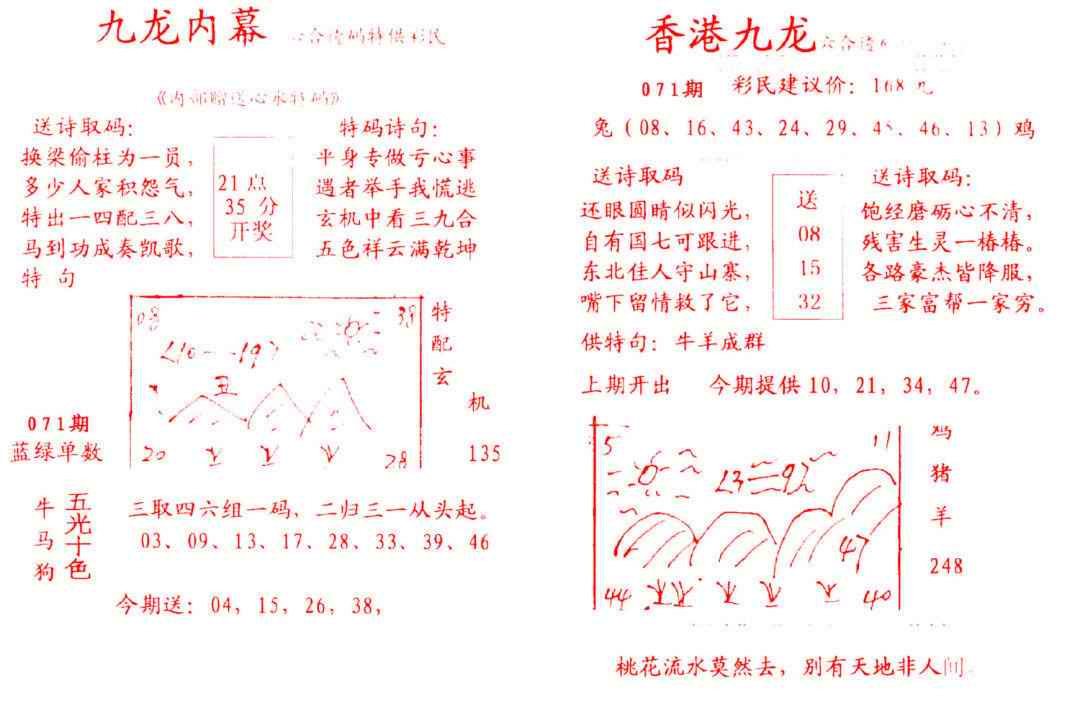 九龙内幕 六合透码特供彩民
《内部赠送心水特码》
送诗取码：
换梁偷柱为一员，
多少人家积怨气，
特出一四配三八，
马到功成奏凯歌，
特 句
21点
35 分
开奖
特码诗句：
半身专做亏心事
遇者举手我慌逃
玄机中看三九合
五色祥云满乾坤
08
38
丑
20
28
特
配
玄
机
135
071期
蓝绿单数
牛
马
狗
五光十色
三取四六组一码，二归三一从头起。
03、09、13、17、28、33、39、46
今期送：04，15，26，38，
香港九龙
071期 彩民建议价：168元
兔（08、16、43、24、29、45、46、13）鸡
送诗取码
还眼圆晴似闪光，
自有国七可跟进，
东北佳人守山寨，
嘴下留情救了它，
送
08
15
32
送诗取码：
饱经磨砺心不清，
残害生灵一椿椿。
各路豪杰皆降服，
三家富帮一家穷。
供特句：牛羊成群
上期开出 今期提供10，21，34，47。
5
11
47
44
40
鸡
猪
羊
248
桃花流水莫然去，别有天地非人间。